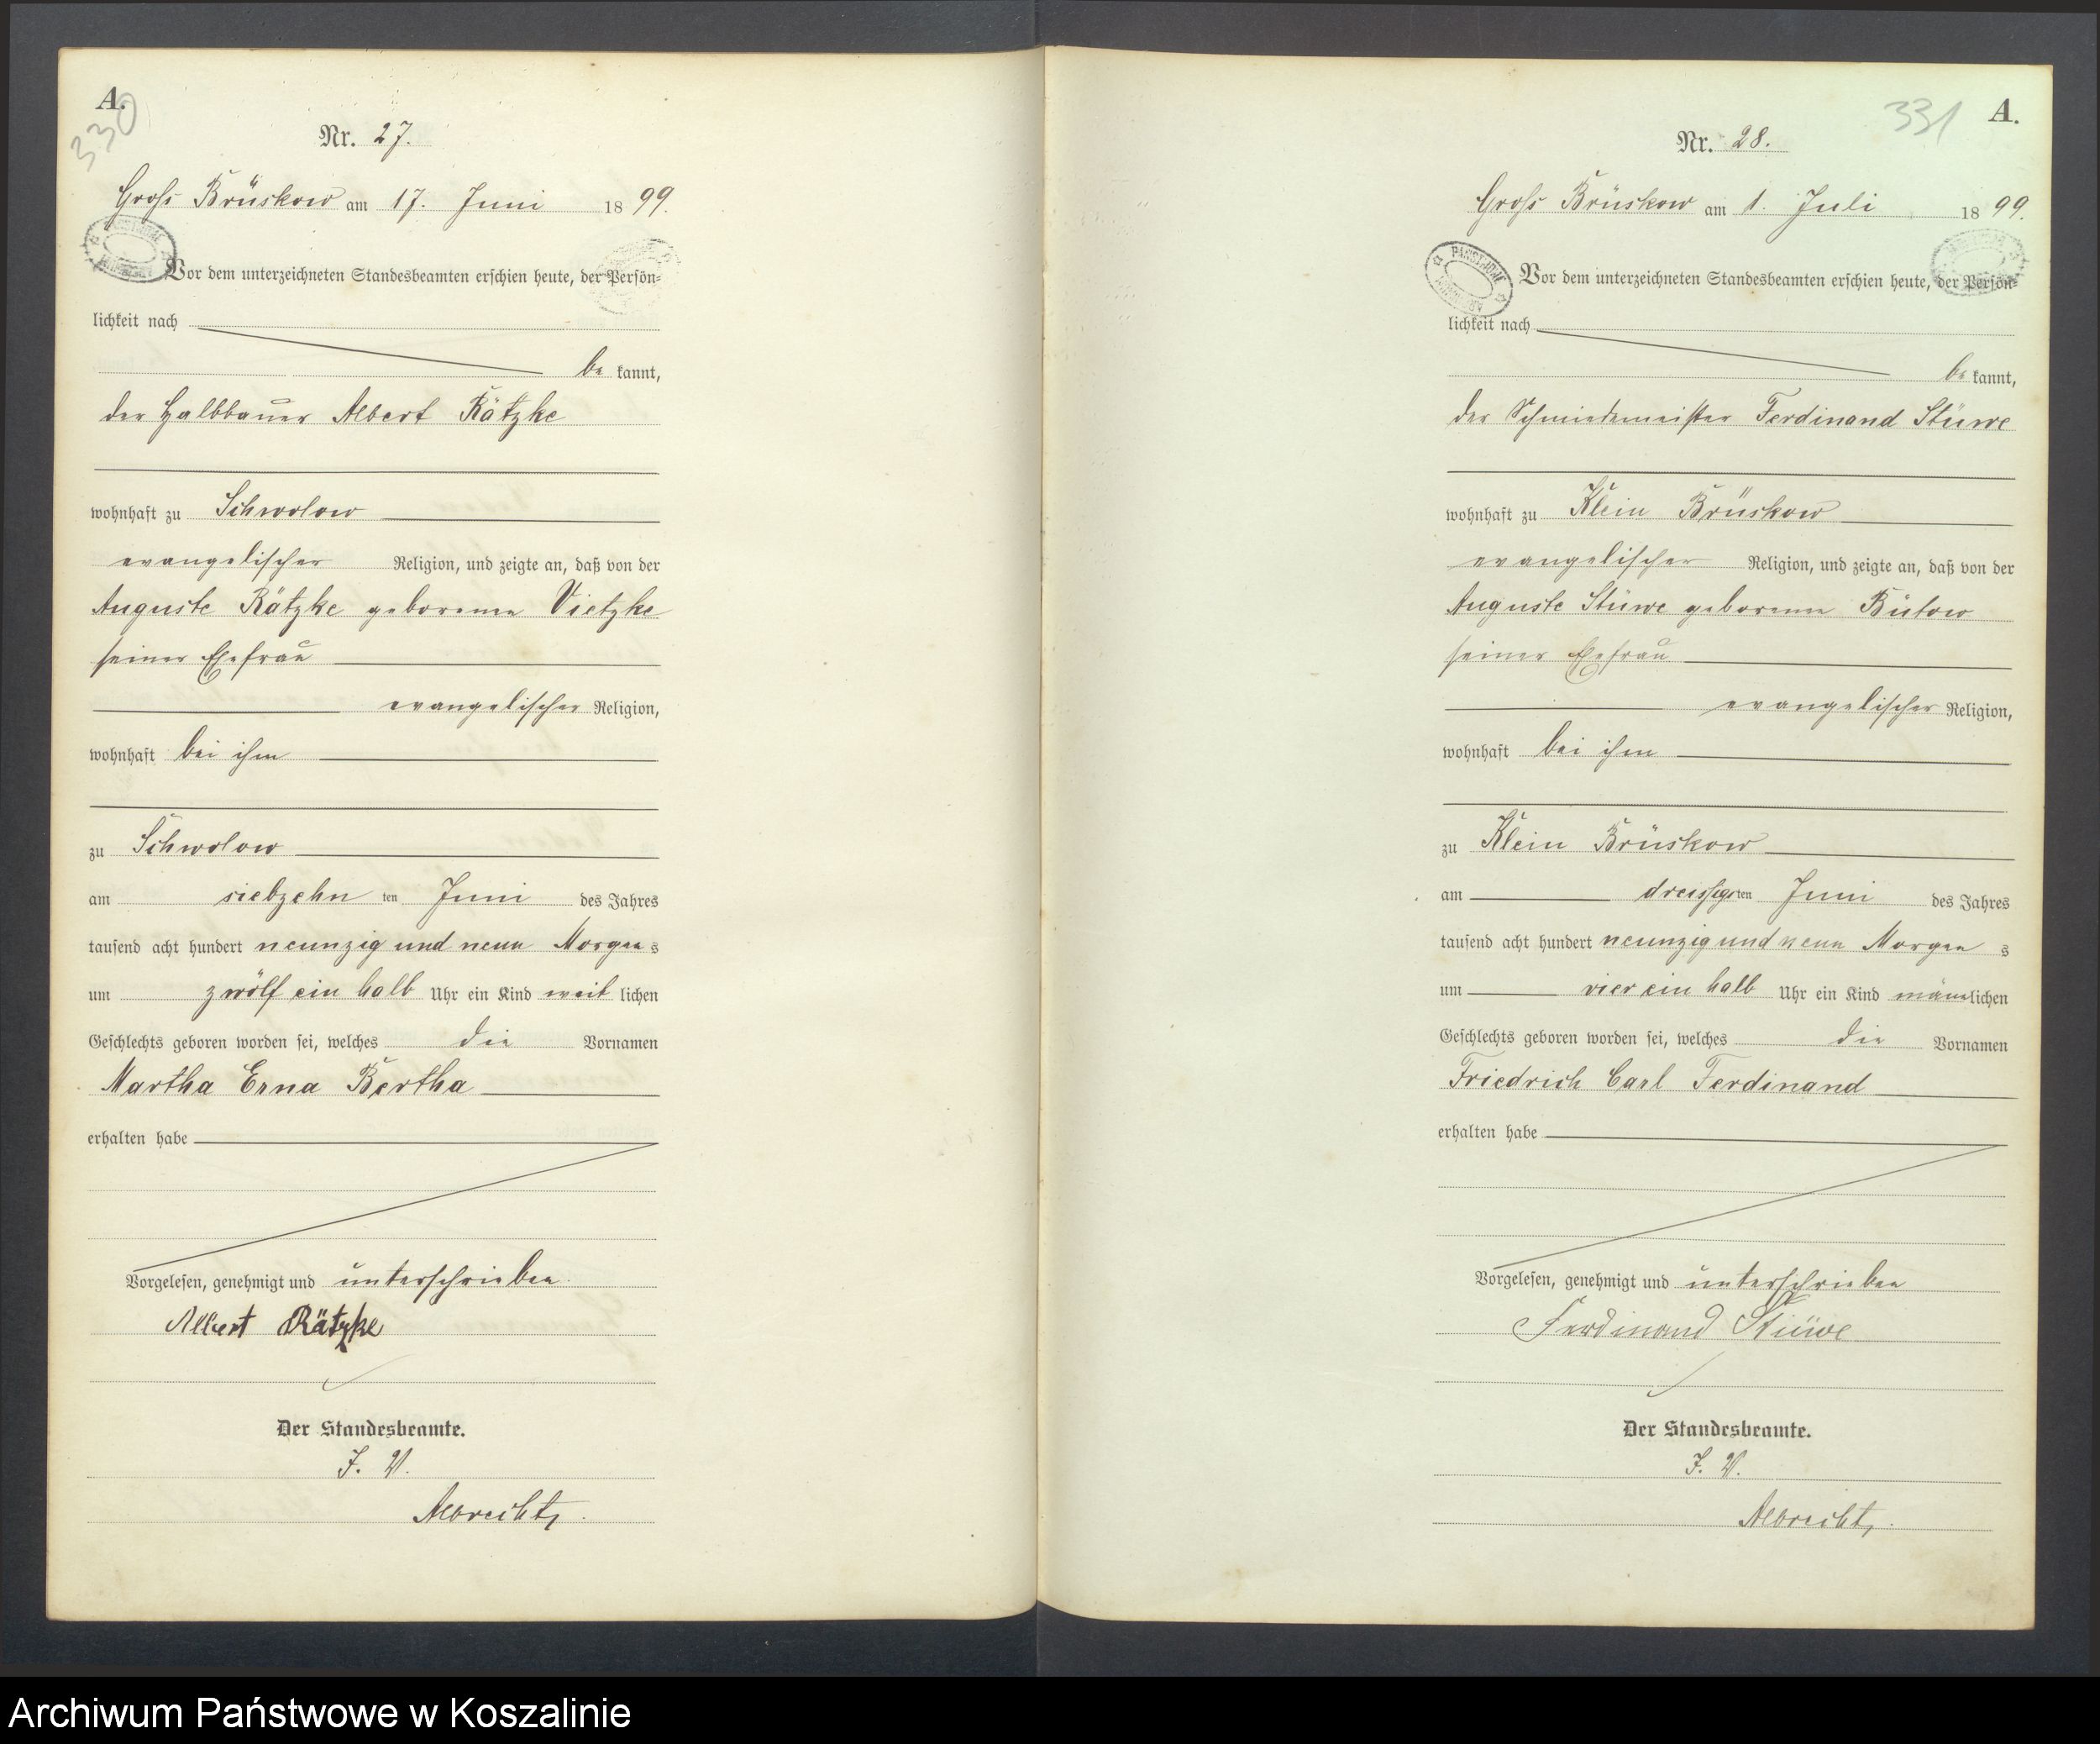 A.
330
Nr. 27.
Groß Brüskow am 17. Juni 1899.
Vor dem unterzeichneten Standesbeamten erschien heute, der Persön-
lichkeit nach
be kannt,
der Halbbauer Albert Rätzke
wohnhaft zu Schwolow
evangelischer Religion, und zeigte an, daß von der
Auguste Rätzke geborenen Vietzke
seiner Ehefrau
evangelischer Religion,
wohnhaft bei ihm
zu Schwolow
am siebzehn ten Juni des Jahres
tausend acht hundert neunzig und neun Morgens
um zwölf ein halb Uhr ein Kind weib lichen
Geschlechts geboren worden sei, welches die Vornamen
Martha Erna Bertha
erhalten habe
Vorgelesen, genehmigt und unterschrieben.
Albert Rätzke
Der Standesbeamte.
I. V.
Albrecht.
331 A.
Nr. 28.
Groß Brüskow am 1. Juli 1899.
Vor dem unterzeichneten Standesbeamten erschien heute, der Persön-
lichkeit nach
be kannt,
der Schmiedemeister Ferdinand Stüwe
wohnhaft zu Klein Brüskow
evangelischer Religion, und zeigte an, daß von der
Auguste Stüwe geborenen Bütow
seiner Ehefrau
evangelischer Religion,
wohnhaft bei ihm
zu Klein Brüskow
am dreissigsten Juni des Jahres
tausend acht hundert neunzig und neun Morgen s
um vier ein halb Uhr ein Kind männlichen
Geschlechts geboren worden sei, welches die Vornamen
Friedrich Carl Ferdinand
erhalten habe
Vorgelesen, genehmigt und unterschrieben
Ferdinand Stüwe
Der Standesbeamte.
I. V.
Albrecht.
Archiwum Państwowe w Koszalinie